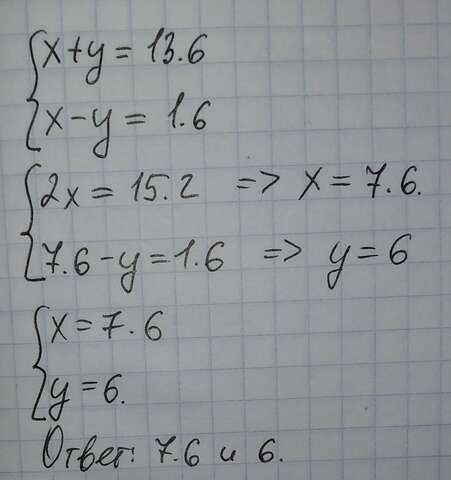 x+y = 13.6
x-y = 1.6
2x = 15.2 => x = 7.6.
7.6-y = 1.6 => y = 6
x = 7.6
y = 6.
Ответ: 7.6 и 6.